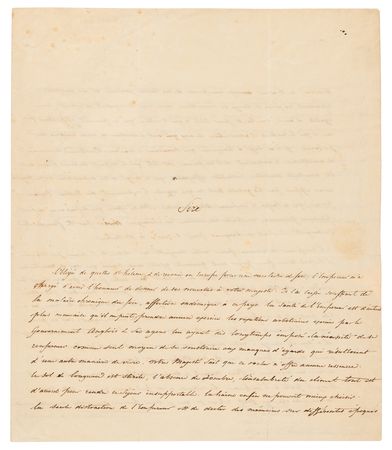 Sire
Obligé de quitter Ste hélène, et de revenir en Europe pour une maladie de foie, l'Empereur m'a
chargé d'avoir l'honneur de donner de ses nouvelles à votre majesté. Je l'ai laissé souffrant de
la maladie chronique du foie, affection endémique à ce pays. la santé de l'Empereur est d'autant
plus menacée qu'il ne peut prendre aucun exercice les vexations exercées par le
Gouvernement Anglais et ses agens lui ayant dès longtemps imposé la nécessité de se
renfermer comme seul moyen de se soustraire aux manques d'égards que résulteraient
d'une autre manière de vivre. votre Majesté sait que ce rocher n'offre aucune ressource
le sol de Longwood est stérile, l'absence de l'ombre, l'insalubrité du climat tout est
d'accord pour rendre ce séjour insupportable. la haine enfin ne pouvait mieux choisir
la seule distraction de l'Empereur est de dicter des mémoires sur différentes époques